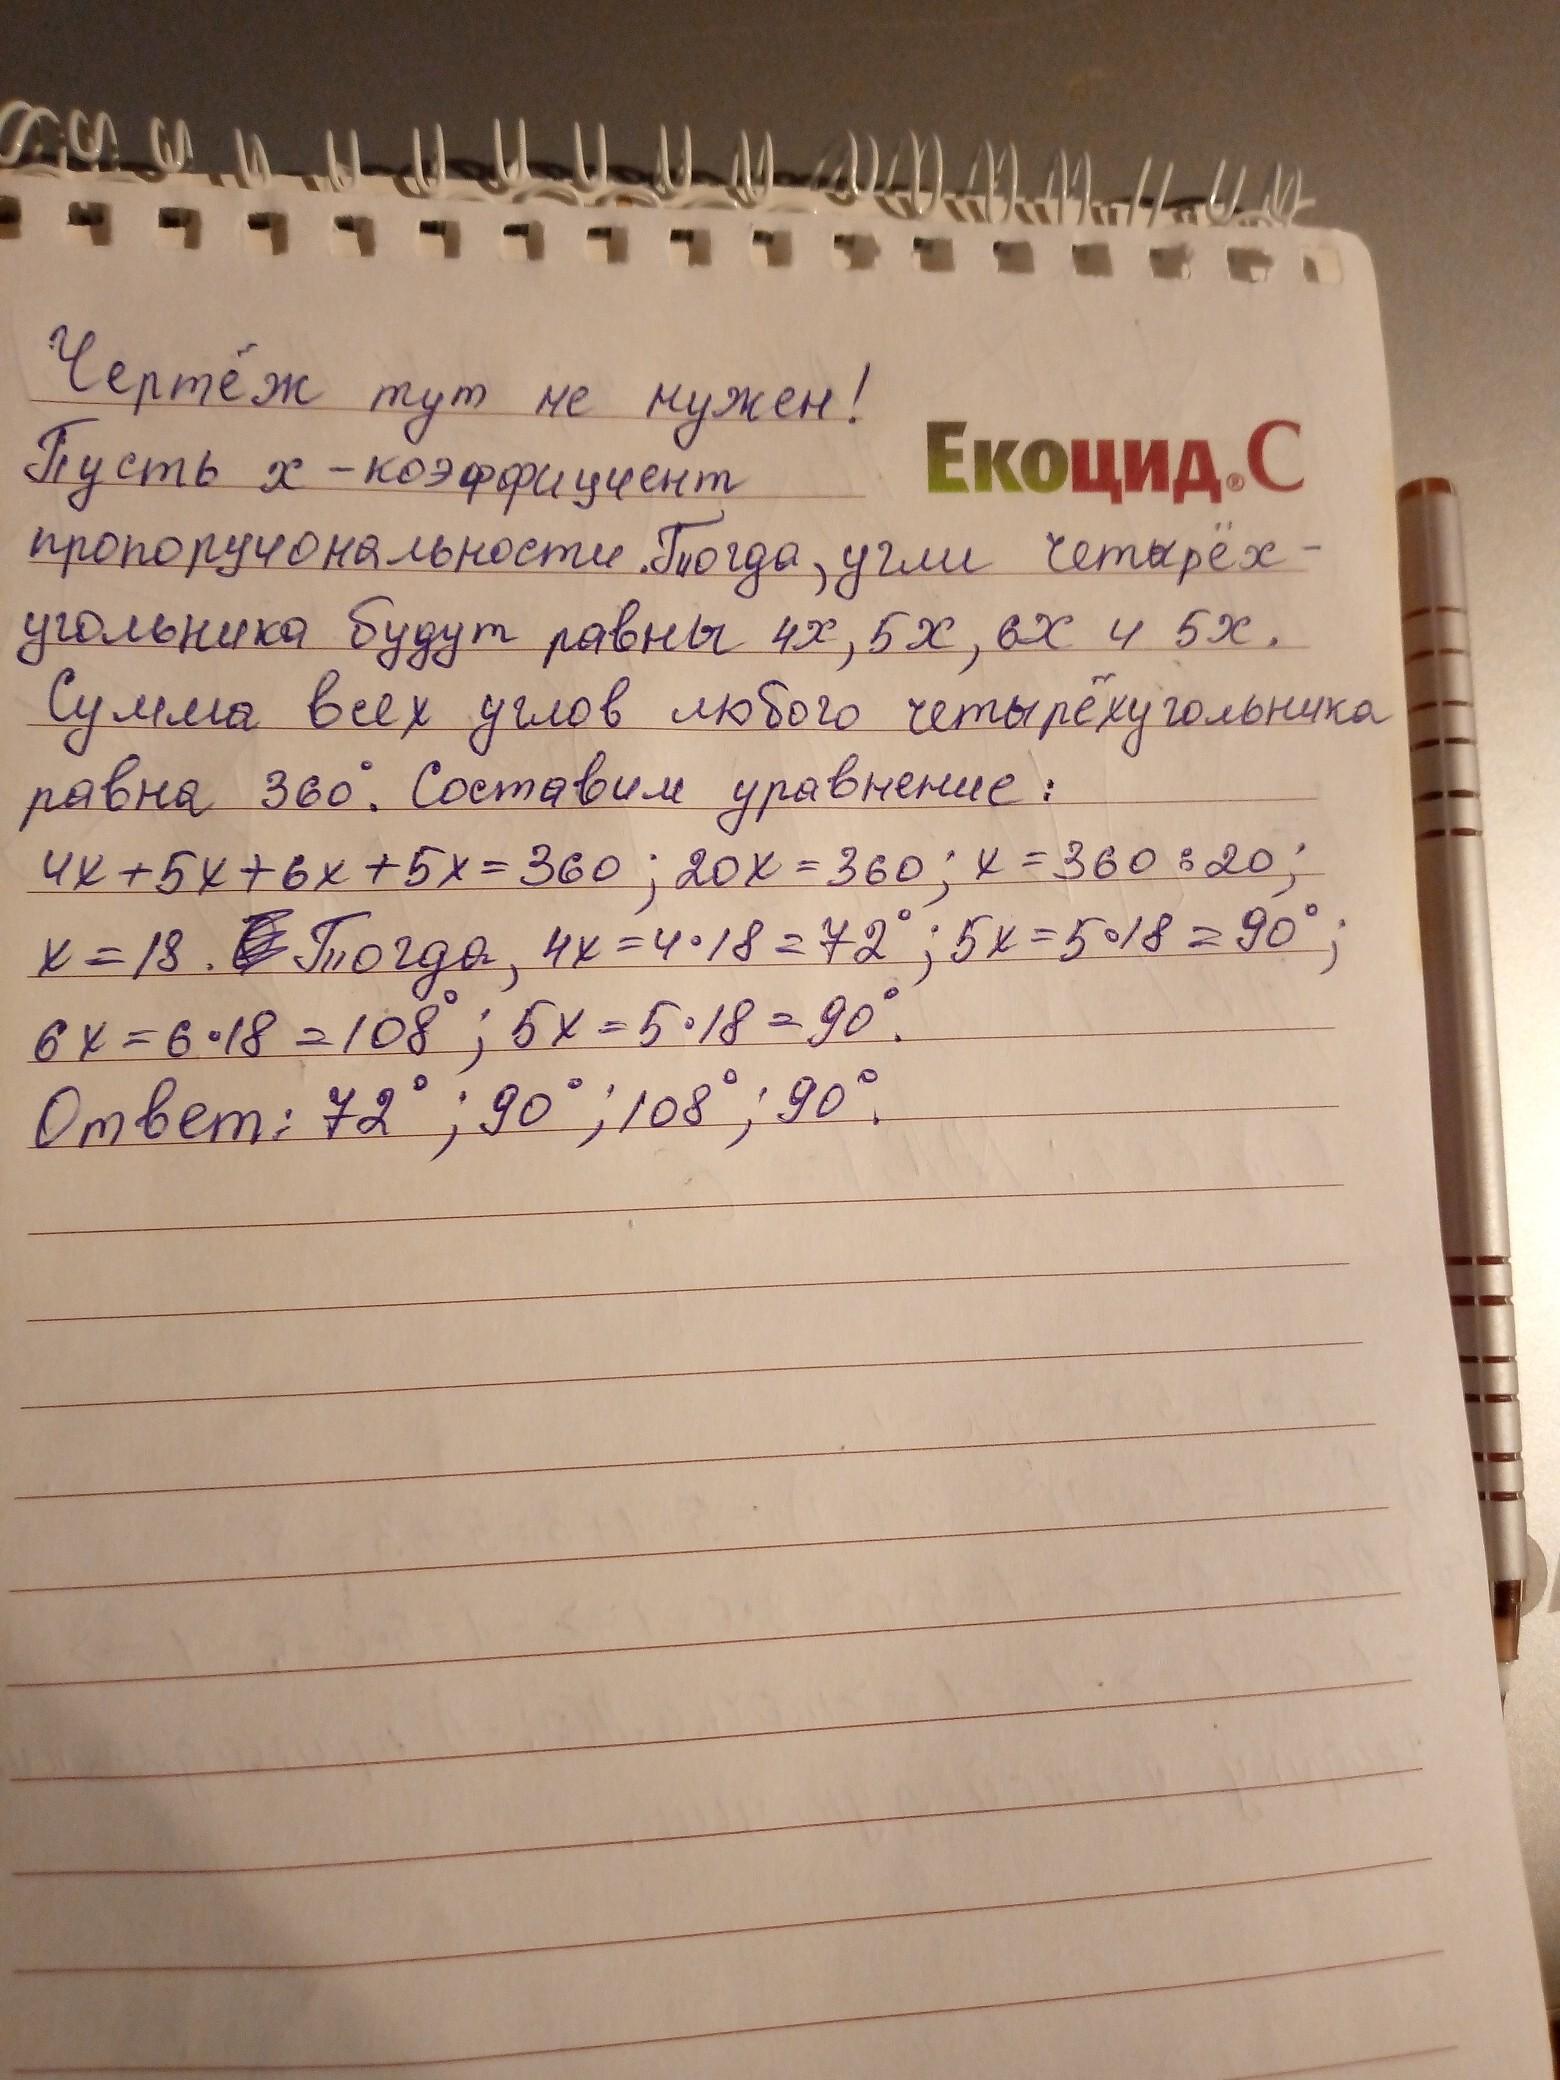 Чертёж тут не нужен!
Екоцид®С
Пусть х - коэффициент
пропорциональности. Тогда, угли четырёх-
угольника будут равны 4х, 5х, 6х и 5х.
Сумма всех углов любого четырёхугольника
равна 360°. Составим уравнение:
4х+5х+6х+5х=360; 20х=360; х=360:20;
х=18. Тогда, 4х=4·18=72°; 5х=5·18=90°;
6х=6·18=108°; 5х=5·18=90°.
Ответ: 72°; 90°; 108°; 90°.